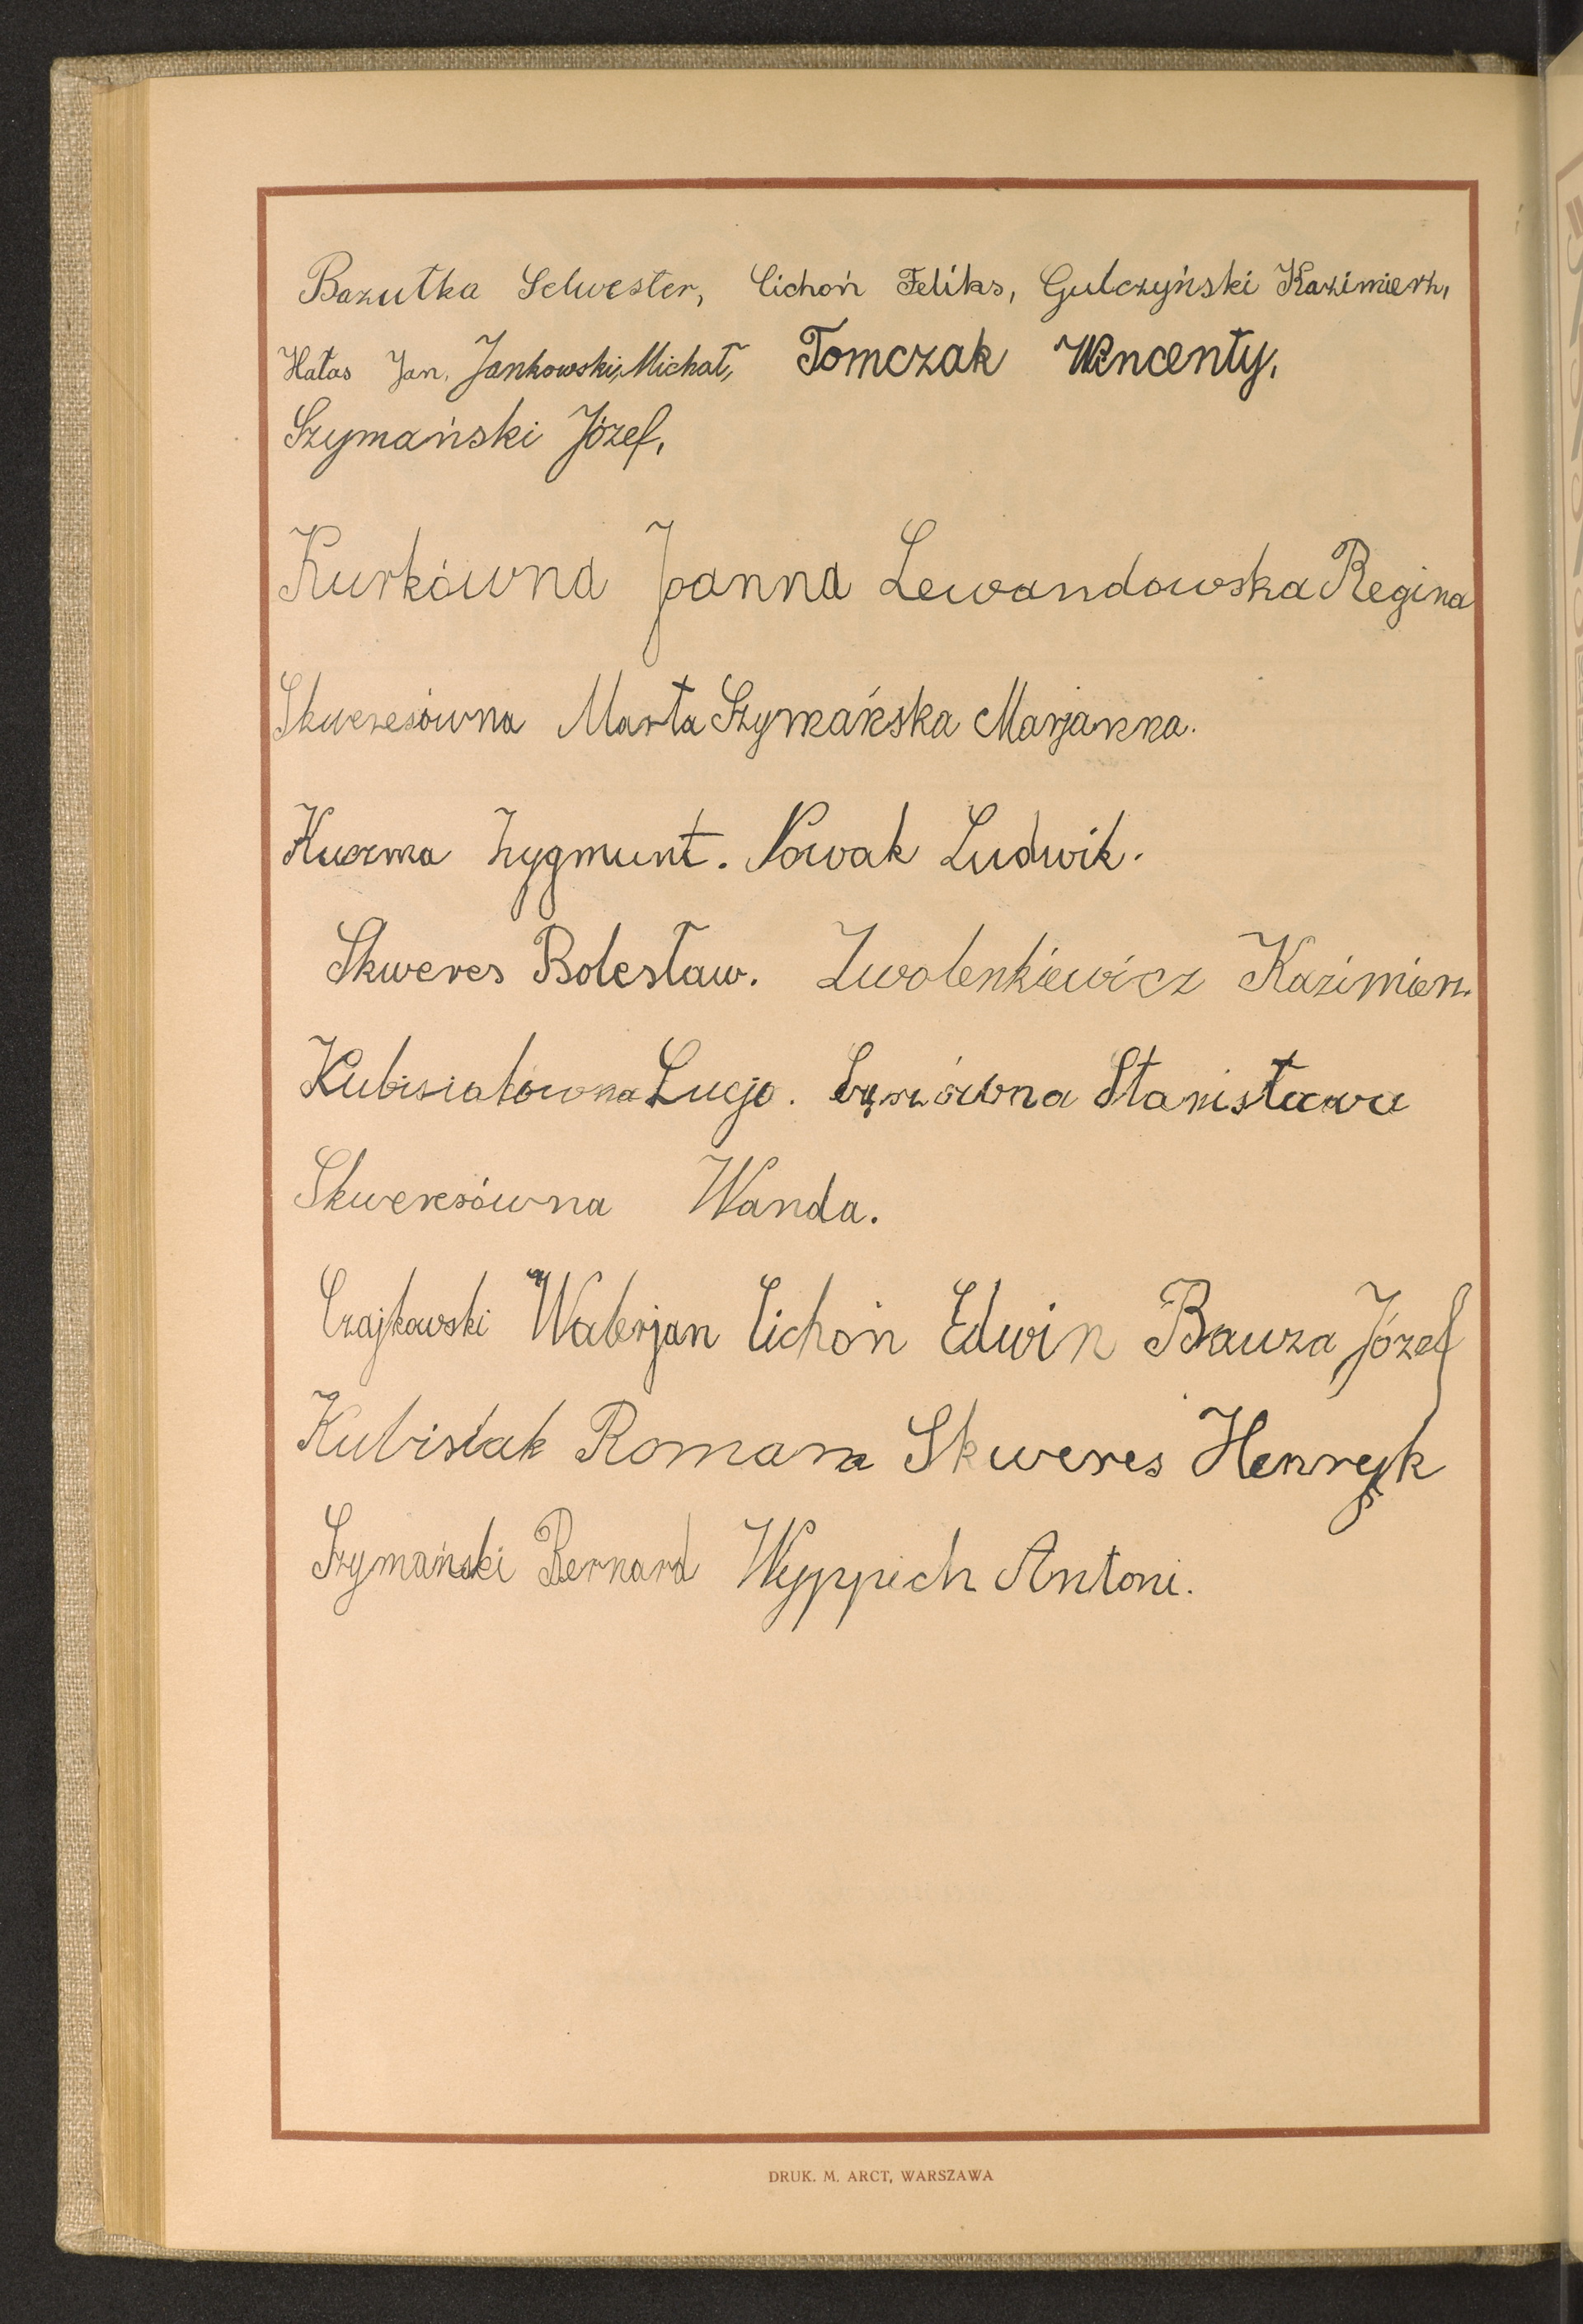 Bazutka Selwester, Cichoń Feliks, Gulczyński Kazimierz,
Hałas Jan, Jankowski, Michał, Tomczak Wincenty,
Szymański Józef,
Kurkówna Joanna Lewandowska Regina
Skweresówna Marta Szymańska Marjanna.
Kuczma Zygmunt. Nowak Ludwik.
Skweres Bolesław. Zwolenkiewicz Kazimierz.
Kubisiakówna Lucja. Stanisława
Skweresówna Wanda.
Czajkowski Walerjan Cichoń Edwin Bauza Józef
Kubisiak Roman Skweres Henryk
Szymański Bernard Wyppich Antoni.
DRUK. M. ARCT, WARSZAWA